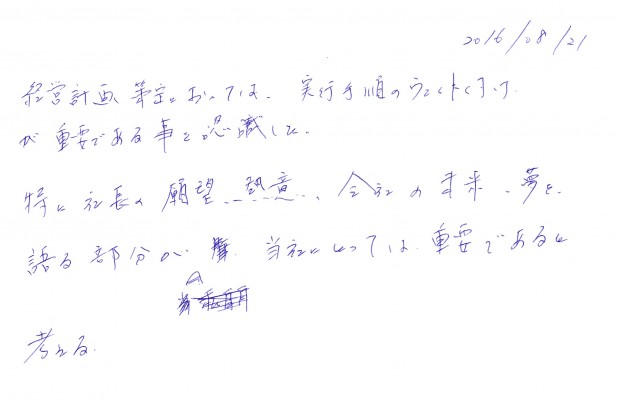 2016/08/21
経営計画策定においては、実行手順の
が重要である事を認識した。
特に社長の願望、熱意、会社の未来、夢を、
語る部分が 当社にとっては、重要であると
考える。